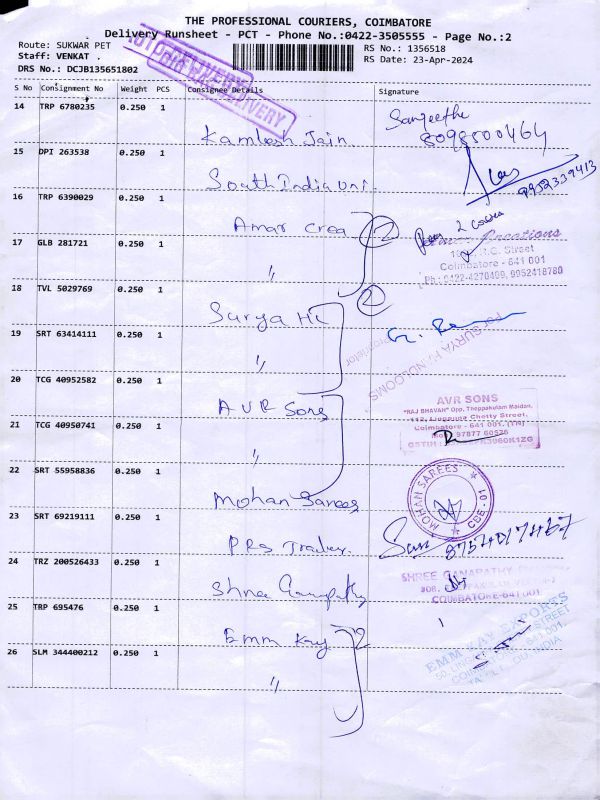 THE PROFESSIONAL COURIERS, COIMBATORE
Delivery Runsheet - PCT - Phone No.:0422-3505555 - Page No.:2
Route: SUKWAR PET
RS No.: 1356518
Staff: VENKAT .
RS Date: 23-Apr-2024
DRS No.: DCJB135651802
AUTO DELIVERY
S No Consignment No Weight PCS Consignee Details Signature
14 TRP 6780235 0.250 1 Kamlesh Jain Sanjeetha
8098800464
15 DPI 263538 0.250 1 South India Uni.
16 TRP 6390029 0.250 1 Amar Crea 2 2 Covers
Creations
Street
Coimbatore - 641 001
Ph.: 0422-4270499, 9952418780
17 GLB 281721 0.250 1 "
18 TVL 5029769 0.250 1 Surya H 2
19 SRT 63414111 0.250 1 "
For SURYA HANDLOOMS
Proprietor
20 TCG 40952582 0.250 1 AVR Sons
AVR SONS
"RAJ BHAVAN" Opp. Theppakulam Maidan,
112, Lingappa Chetty Street,
Coimbatore - 641 001. (TN)
Mob: 97877 60526
21 TCG 40950741 0.250 1 "
22 SRT 55958836 0.250 1 Mohan Sarees
MOHAN SAREES CBE - 01
23 SRT 69219111 0.250 1 PRS Trader.
8754017427
24 TRZ 200526433 0.250 1 Shree Ganapathy
SHREE GANAPATHY
COIMBATORE-641 001
25 TRP 695476 0.250 1 Emm Kay 2
EMM KAY EXPORTS
STREET
INDIA
26 SLM 344400212 0.250 1 "